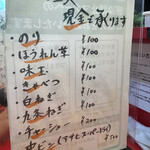 現金で承ります
・のり ¥100
・ほうれん草 ¥100
・味玉 ¥100
・きゃべつ ¥100
・白ねぎ ¥100
・九条ねぎ ¥100
・チャーシュー ¥200
・中ビン(アサヒスーパードライ) ¥500